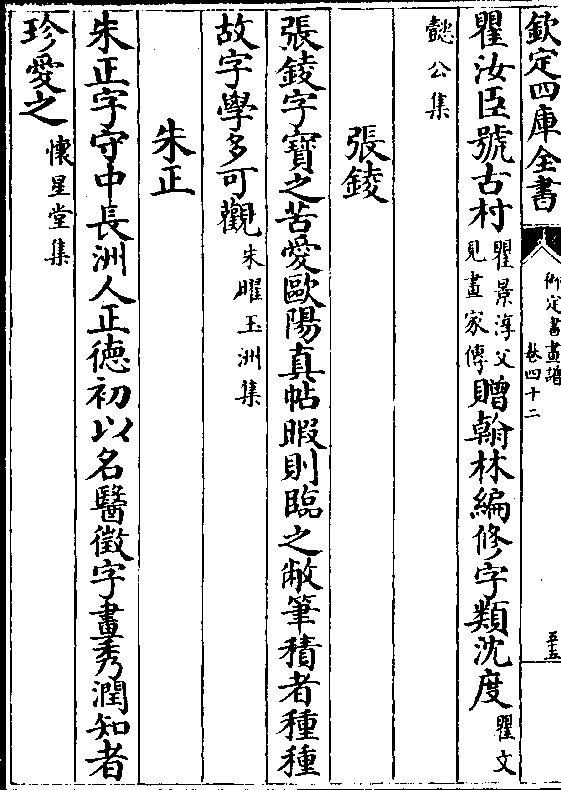 欽定四庫全書
御定書畫譜
卷四十二
五十五
瞿汝臣號古村瞿景淳父見畫家傳贈翰林編修字類沈度瞿文
懿公集
張錂
張錂字寶之苦愛歐陽真帖暇則臨之敝筆積者種種
故字學多可觀朱曜玉洲集
朱正
朱正字守中長洲人正德初以名醫徵字畫秀潤知者
珍愛之懷星堂集